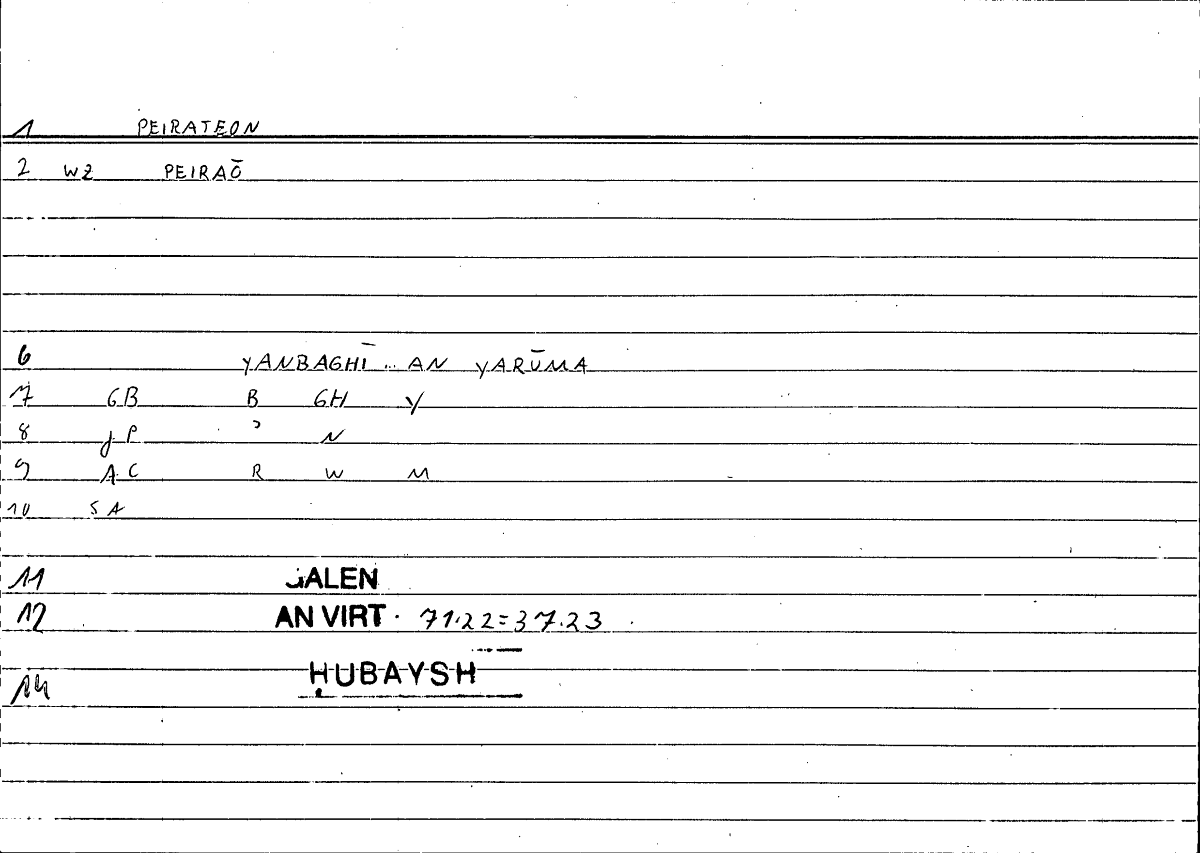 1 PEIRATEON
2 WZ PEIRAŌ
6 YANBAGHĪ ... AN YARŪMA
7 GB B GH Y
8 JP ʾ N
9 AC R W M
10 SA
11 GALEN
12 AN VIRT. 71.22=37.23
14 ḤUBAYSH